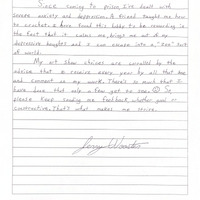 Since coming to prison, I've dealt with
severe anxiety and depression. A friend taught me how
to crochet & have found this hobby to be rewarding is
the fact that it calms me, brings me out of my
depressive thoughts and I can escape into a, "zen" sort
of world.
My art show choices are unrolled by the
advice that I receive every year by all that see
and comment on my work. There's so much that I
have done that only a few get to see ☺ So,
please keep sending me feedback, whether good or
constructive. That's what makes me thrive.